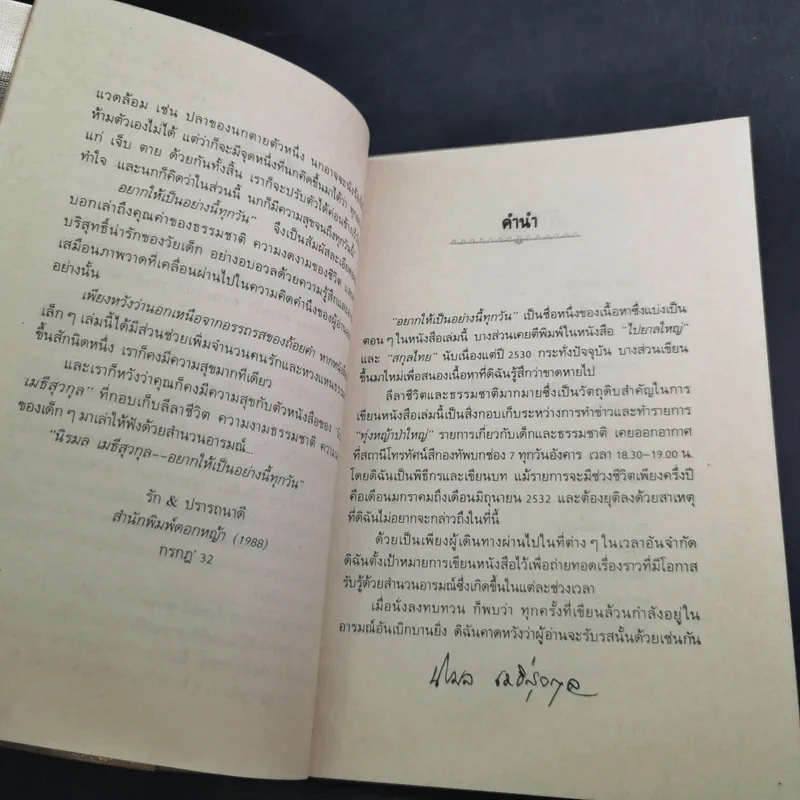 แวดล้อม เช่น ปลาของนกตายตัวหนึ่ง นกอาจจะนั่ง
ห้ามตัวเองไม่ได้ แต่ว่าก็จะมีจุดหนึ่งที่นกคิดขึ้นมาได้ว่า
แก่ เจ็บ ตาย ด้วยกันทั้งสิ้น เราก็จะปรับตัวได้ค่อนข้าง
ทำใจ และนกก็คิดว่าในส่วนนี้ นกก็มีความสุขจนถึงทุกวันนี้
อยากให้เป็นอย่างนี้ทุกวัน" จึงเป็นสัมผัสละเอียด
บอกเล่าถึงคุณค่าของธรรมชาติ ความงดงามของชีวิต
บริสุทธิ์น่ารักของวัยเด็ก อย่างอบอวลด้วยความรู้สึกและ
เสมือนภาพวาดที่เคลื่อนผ่านไปในความคิดคำนึงของผู้อ่าน
อย่างนั้น
เพียงหวังว่านอกเหนือจากอรรถรสของถ้อยคำ หากหนังสือ
เล็ก ๆ เล่มนี้ได้มีส่วนช่วยเพิ่มจำนวนคนรักและหวงแหน
ขึ้นสักนิดหนึ่ง เราก็คงมีความสุขมากทีเดียว
และเราก็หวังว่าคุณก็คงมีความสุขกับตัวหนังสือของ
เมธีสุวกุล" ที่กอบเก็บลีลาชีวิต ความงามธรรมชาติ
ของเด็ก ๆ มาเล่าให้ฟังด้วยสำนวนอารมณ์...
"นิรมล เมธีสุวกุล--อยากให้เป็นอย่างนี้ทุกวัน"
รัก & ปรารถนาดี
สำนักพิมพ์ดอกหญ้า (1988)
กรกฎ' 32
คำนำ
"อยากให้เป็นอย่างนี้ทุกวัน" เป็นชื่อหนึ่งของเนื้อหาซึ่งแบ่งเป็น
ตอน ๆ ในหนังสือเล่มนี้ บางส่วนเคยตีพิมพ์ในหนังสือ "ไปยาลใหญ่"
และ "สกุลไทย" นับเนื่องแต่ปี 2530 กระทั่งปัจจุบัน บางส่วนเขียน
ขึ้นมาใหม่เพื่อสนองเนื้อหาที่ดิฉันรู้สึกว่าขาดหายไป
ลีลาชีวิตและธรรมชาติมากมายซึ่งเป็นวัตถุดิบสำคัญในการ
เขียนหนังสือเล่มนี้เป็นสิ่งกอบเก็บระหว่างการทำข่าวและทำรายการ
"ทุ่งหญ้าป่าใหญ่" รายการเกี่ยวกับเด็กและธรรมชาติ เคยออกอากาศ
ที่สถานีโทรทัศน์สีกองทัพบกช่อง 7 ทุกวันอังคาร เวลา 18.30-19.00 น.
โดยดิฉันเป็นพิธีกรและเขียนบท แม้รายการจะมีช่วงชีวิตเพียงครึ่งปี
คือเดือนมกราคมถึงเดือนมิถุนายน 2532 และต้องยุติลงด้วยสาเหตุ
ที่ดิฉันไม่อยากจะกล่าวถึงในที่นี้
ด้วยเป็นเพียงผู้เดินทางผ่านไปในที่ต่าง ๆ ในเวลาอันจำกัด
ดิฉันตั้งเป้าหมายการเขียนหนังสือไว้เพื่อถ่ายทอดเรื่องราวที่มีโอกาส
รับรู้ด้วยสำนวนอารมณ์ซึ่งเกิดขึ้นในแต่ละช่วงเวลา
เมื่อนั่งลงทบทวน ก็พบว่า ทุกครั้งที่เขียนล้วนกำลังอยู่ใน
อารมณ์อันเบิกบานยิ่ง ดิฉันคาดหวังว่าผู้อ่านจะรับรสนั้นด้วยเช่นกัน
นิรมล เมธีสุวกุล